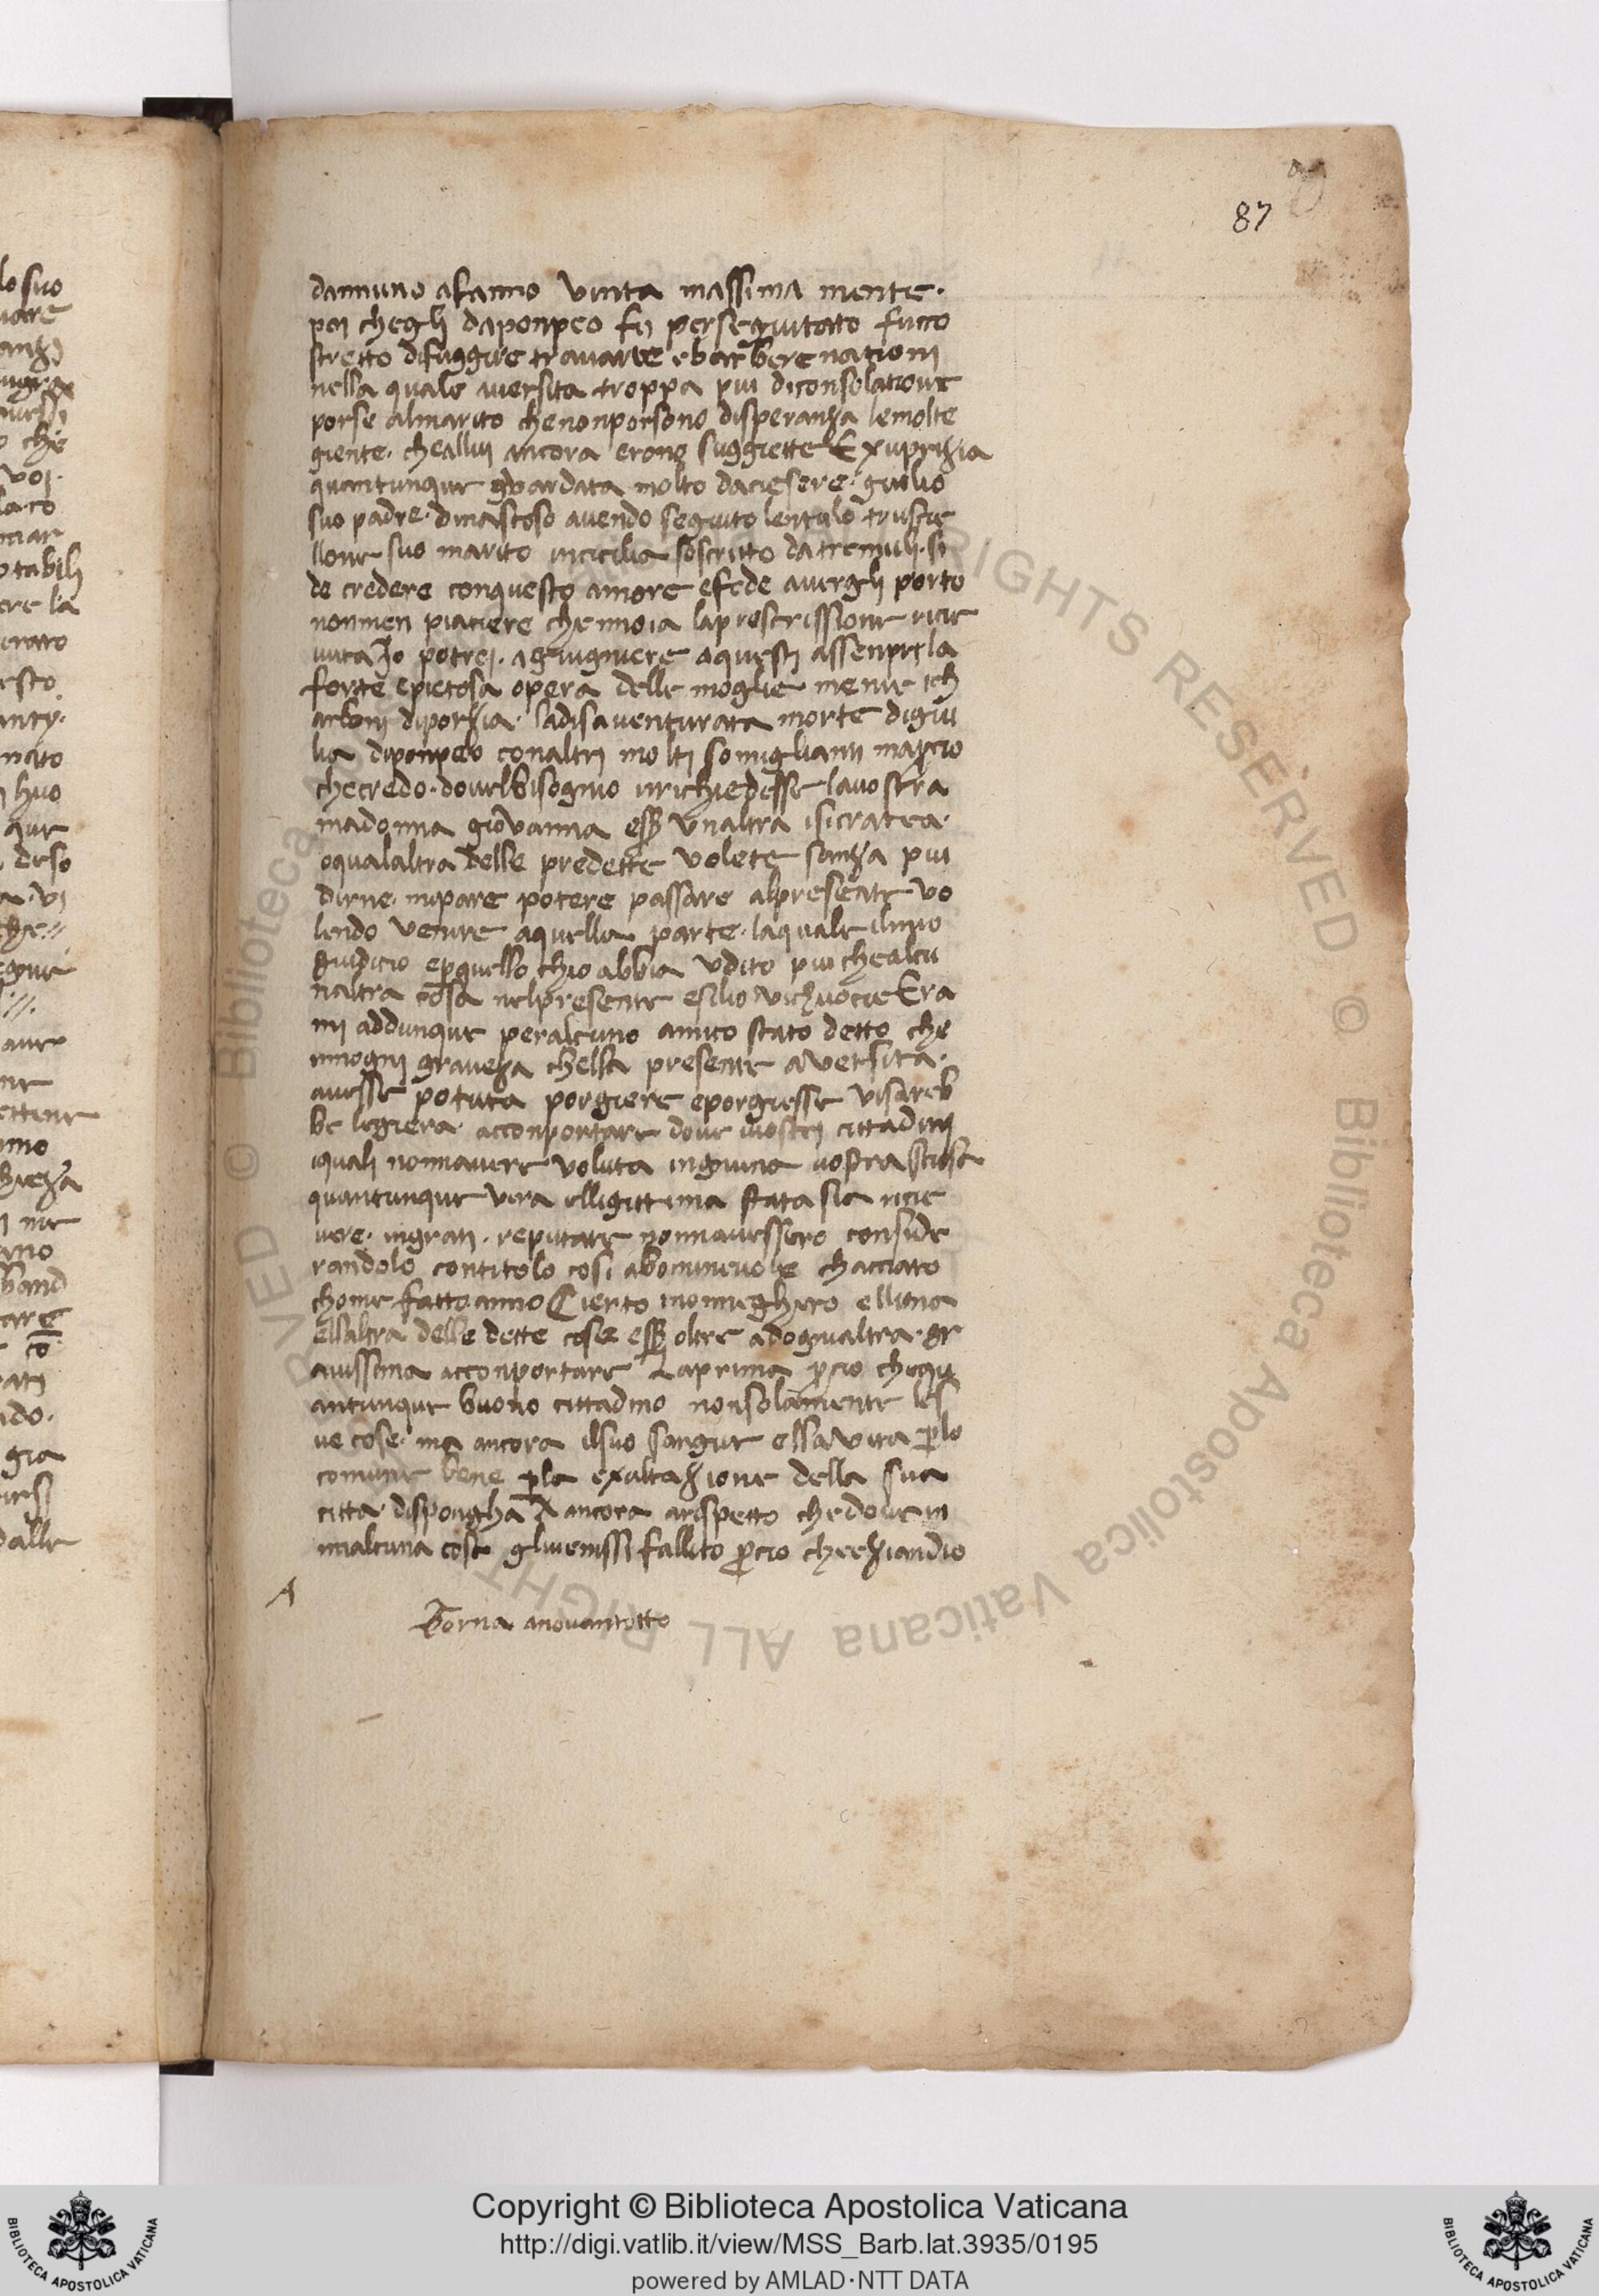 87
danniuno afanno vinta massima mente·
poi chegli daponpeo fu perseguitato fucco
stretto difuggire travarie ebarbere nationi
nella quale aversita troppa piu diconsolatione
porse almarito chenonporsono disperanza lemolte
giente· cheallui ancora erono suggiette Exuprizia
quantunque gvardata molto daciesere· giulio
suo padre· dinascoso avendo seguito lentulo truscie
llone suo marito incicilia soscritto datremuli· si
de credere conquesto amore efede avergli porto
nonmen piaciere chennoia laproscrissione ricie
vuta Io potrei· agiugniere aquesti assenpri la
forte epietosa opera delle moglie menie ich
arboni diporzia· ladisaventurata morte digiu
lia diponpeo conaltri molti somiglianti mapcio
checredo· dovelbisognio irichiedesse lavostra
madonna giovanna esser unaltra isicratea·
oqualaltra delle predette volete sanza piu
dirne· mipare potere passare alpresente vo
lendo venire aquella parte· laquale ilmio
giudicio epquello chio abbia udito piu chealcu
naltra cosa nelpresente esilio vichuocie Era
mi addunque peralcuno amico stato detto che
innogni graveza chella presente aversita·
avesse potuta porgiere eporgiesse visareb
be legiera· acconportare dove ivostri cittadini
iquali nonnavere voluta ingiuria vostra scusa
quantunque vera elligittima stata sia ricie
vere· ingrati· reputare nonnavessero conside
randolo contitolo cosi abominevole chacciato
chome fatto anno Ciento monneghero elluna
ellaltra delle dette cose esser oltre adognialtra· gr
avissima acconportare Laprima pcio chequ
antunque buono cittadino nonsolamente les
ue cose· ma ancora ilsuo sangue ella vita plo
comune bene pla exaltazione della sua
citta· disponga A ancora arispetto chedove in
inalcuna cosa glivenissi fallito pcio cheeziandio
A
Torna anovantotto
lo suo
voi·
gia
dalle
Copyright © Biblioteca Apostolica Vaticana
http://digi.vatlib.it/view/MSS_Barb.lat.3935/0195
powered by AMLAD·NTT DATA